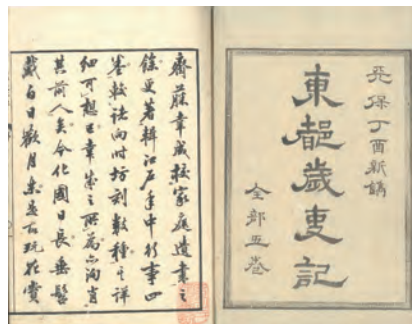 天保丁酉新鐫
東都歳事記
全部五巻
齋藤幸成按家庭遺書之
餘更著輯江戸年中行事四
巻較諸向時坊刻數種其詳
細可想已幸成之所為亦洵肖
其前人矣今化國日長垂髫
戴白日歡月樂其於玩花賞